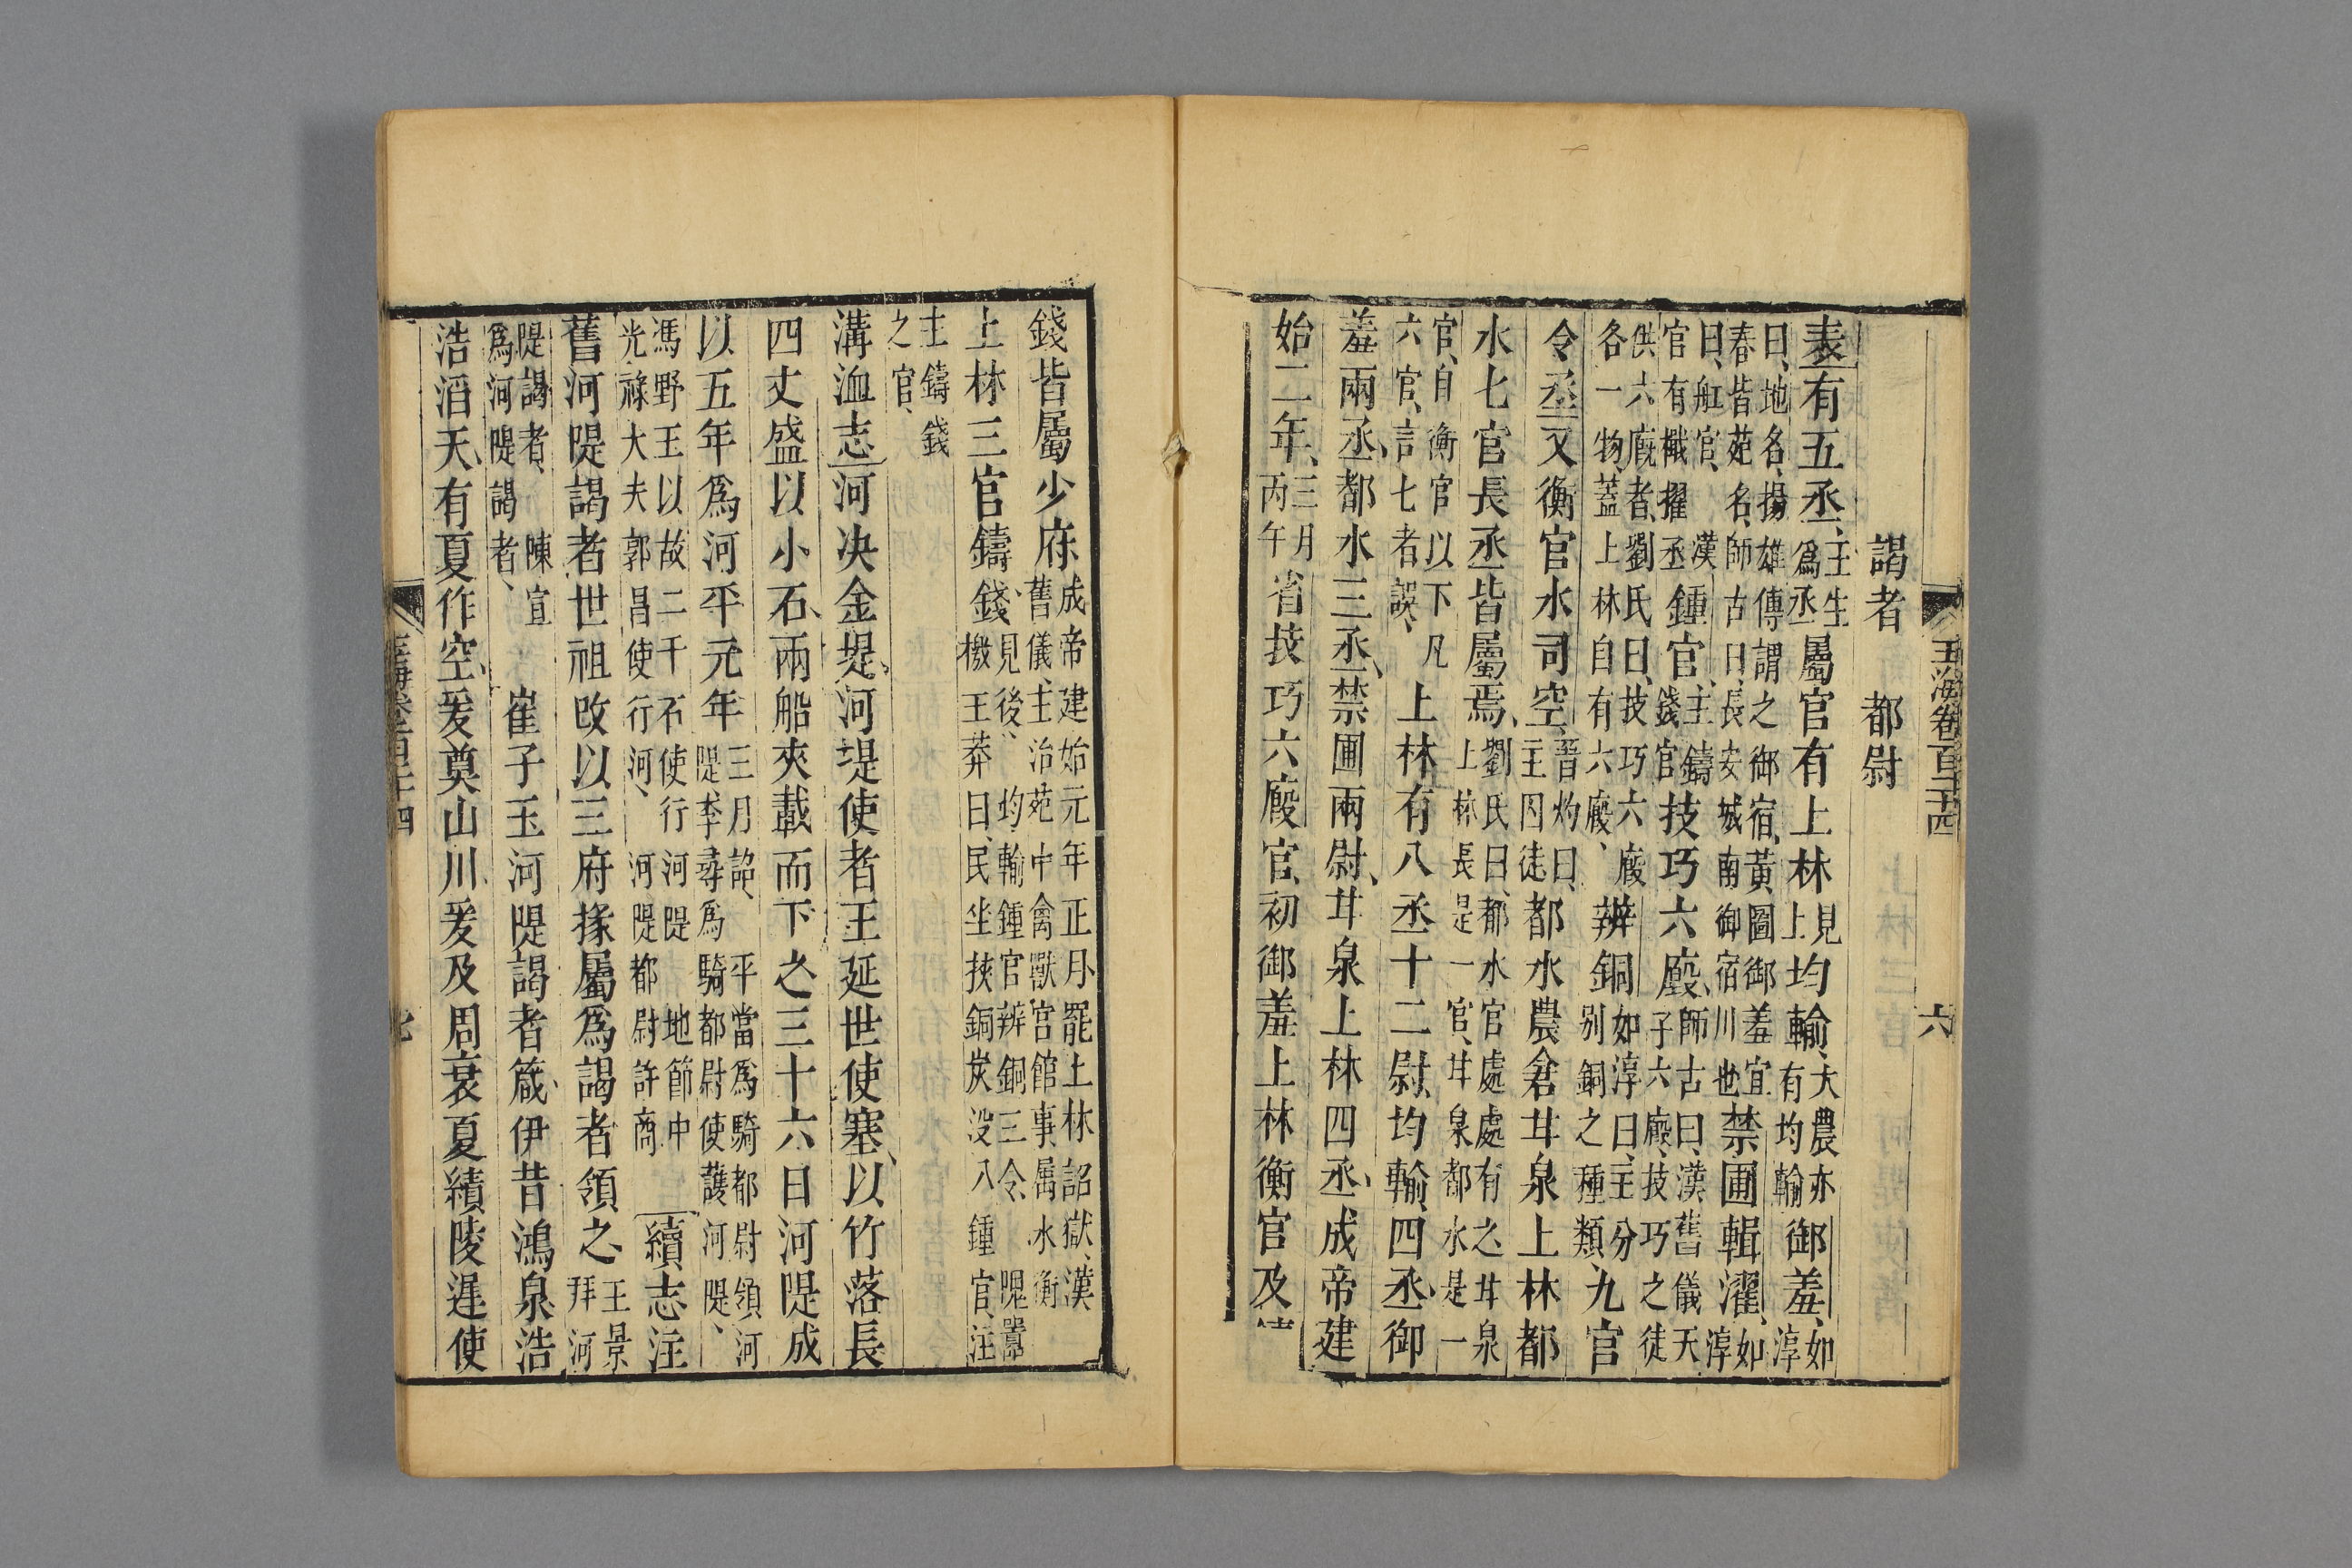 玉海卷百二十四
六
謁者 都尉
表有五丞、主生爲丞屬官有上林見上均輸、大農亦有均輸御羞、如淳
曰、地名、揚雄傳謂之御宿、黃圖御羞宜春皆苑名、師古曰、長安城南御宿川也禁圃輯濯、如淳
曰、舡官、官有檝擢丞漢鍾官、主鑄錢官技巧六廄、師古曰、漢舊儀天子六廄、技巧之徒
供六廄者、劉氏曰、技巧六廄各一物、蓋上林自有六廄、辨銅如淳曰、主分別銅之種類、九官
令丞又衡官水司空、晉灼曰、主囚徒都水農倉甘泉上林都
水七官長丞皆屬焉、劉氏曰、都水官處處有之甘泉上林長是一官、甘泉都水是一
官、自衡官以下凡六官、言七者誤、上林有八丞十二尉、均輸四丞、御
羞兩丞、都水三丞、禁圃兩尉、甘泉上林四丞、成帝建
始二年、三月丙午省技巧六廄官、初御羞上林衡官及
錢皆屬少府成帝建始元年正月罷上林詔獄、漢舊儀、主治苑中禽獸宮館事屬水衡
上林三官鑄錢、見後、均輸鍾官辨銅三令、隗囂檄王莽曰、民坐挾銅炭没入鍾官、注
主鑄錢之官、
溝洫志河決金堤、河堤使者王延世使塞、以竹落長
四丈盛以小石、兩船夾載而下之三十六日河隄成
以五年爲河平元年三月詔、平當爲騎都尉領河隄、李尋爲騎都尉使護河隄、
馮野王以故二千石使行河隄地節中光祿大夫郭昌使行河、河隄都尉許商續志注
舊河隄謁者世祖改以三府掾屬爲謁者領之王景拜河
隄謁者、陳宣爲河隄謁者、崔子玉河隄謁者箴、伊昔鴻泉浩
浩滔天、有夏作空、爰奠山川爰及周衰夏績陵遲使
玉海卷之百二十四
七